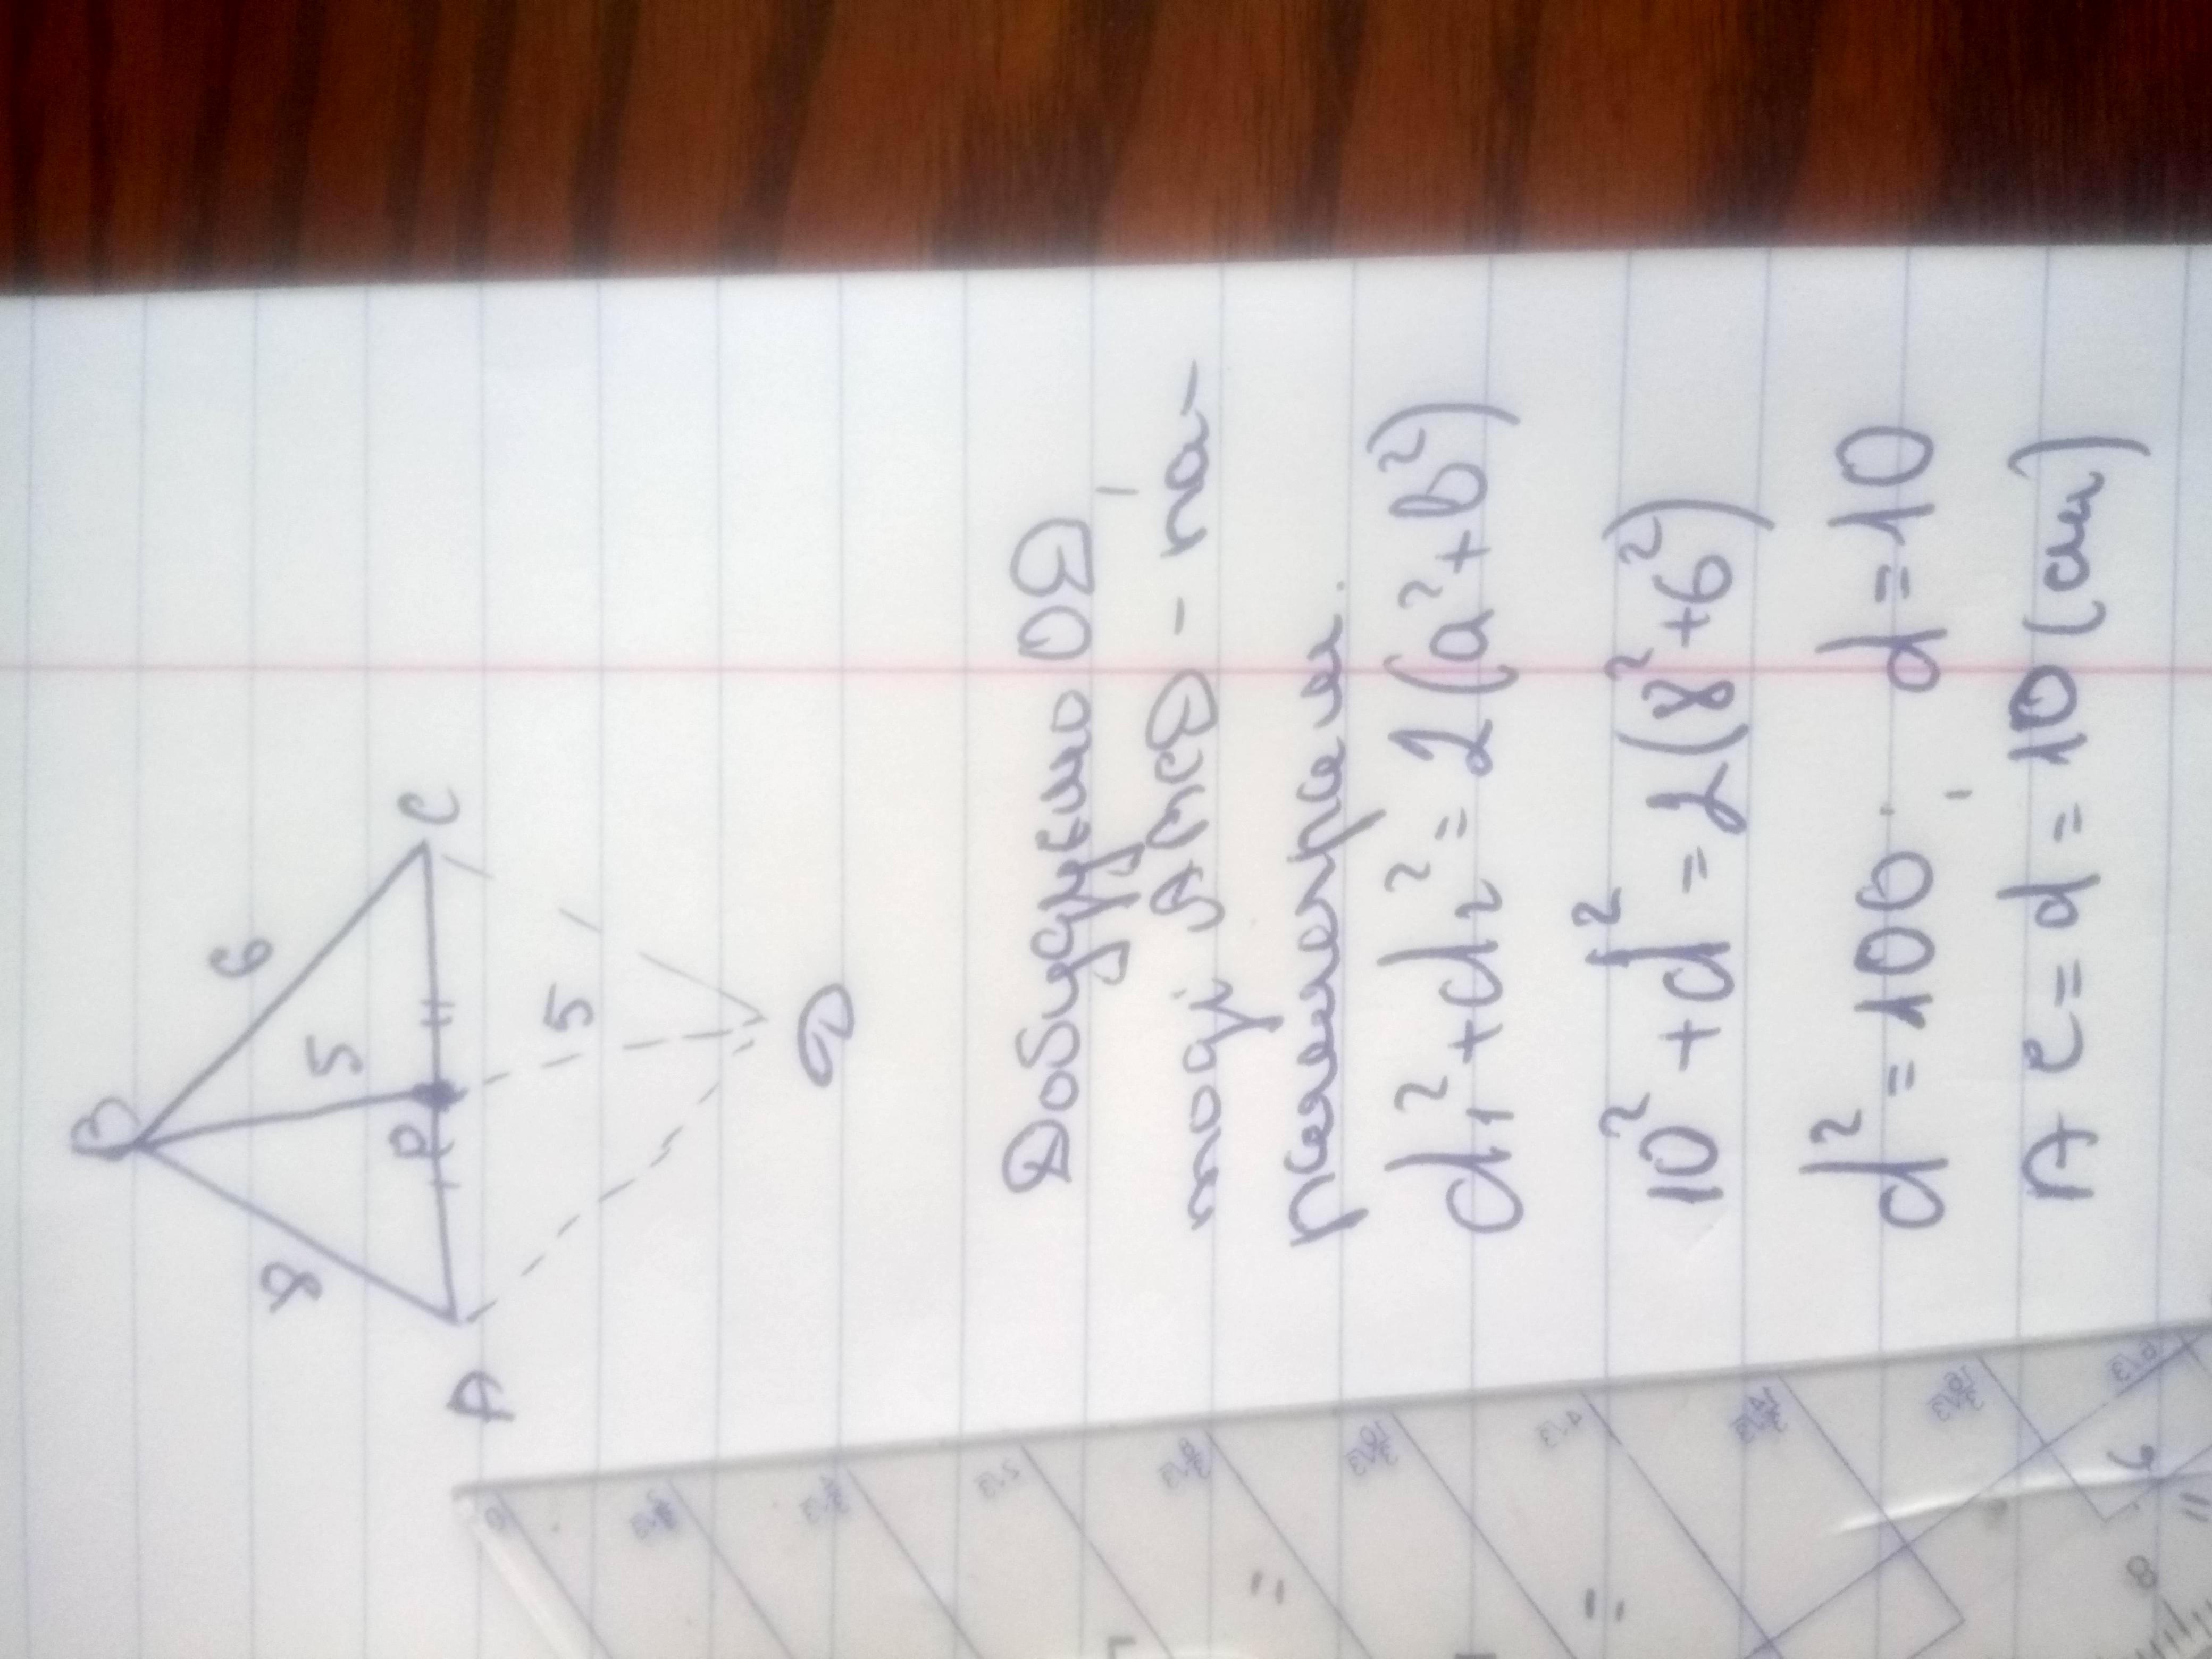 B
8
6
5
P
A
C
5
D
Добудуємо ОD,
тоді АВСD - па-
ралелерам.
d₁² + d₂² = 2(a² + b²)
10² + d² = 2(8² + 6²)
d² = 100 d = 10
AC = d = 10 (см)